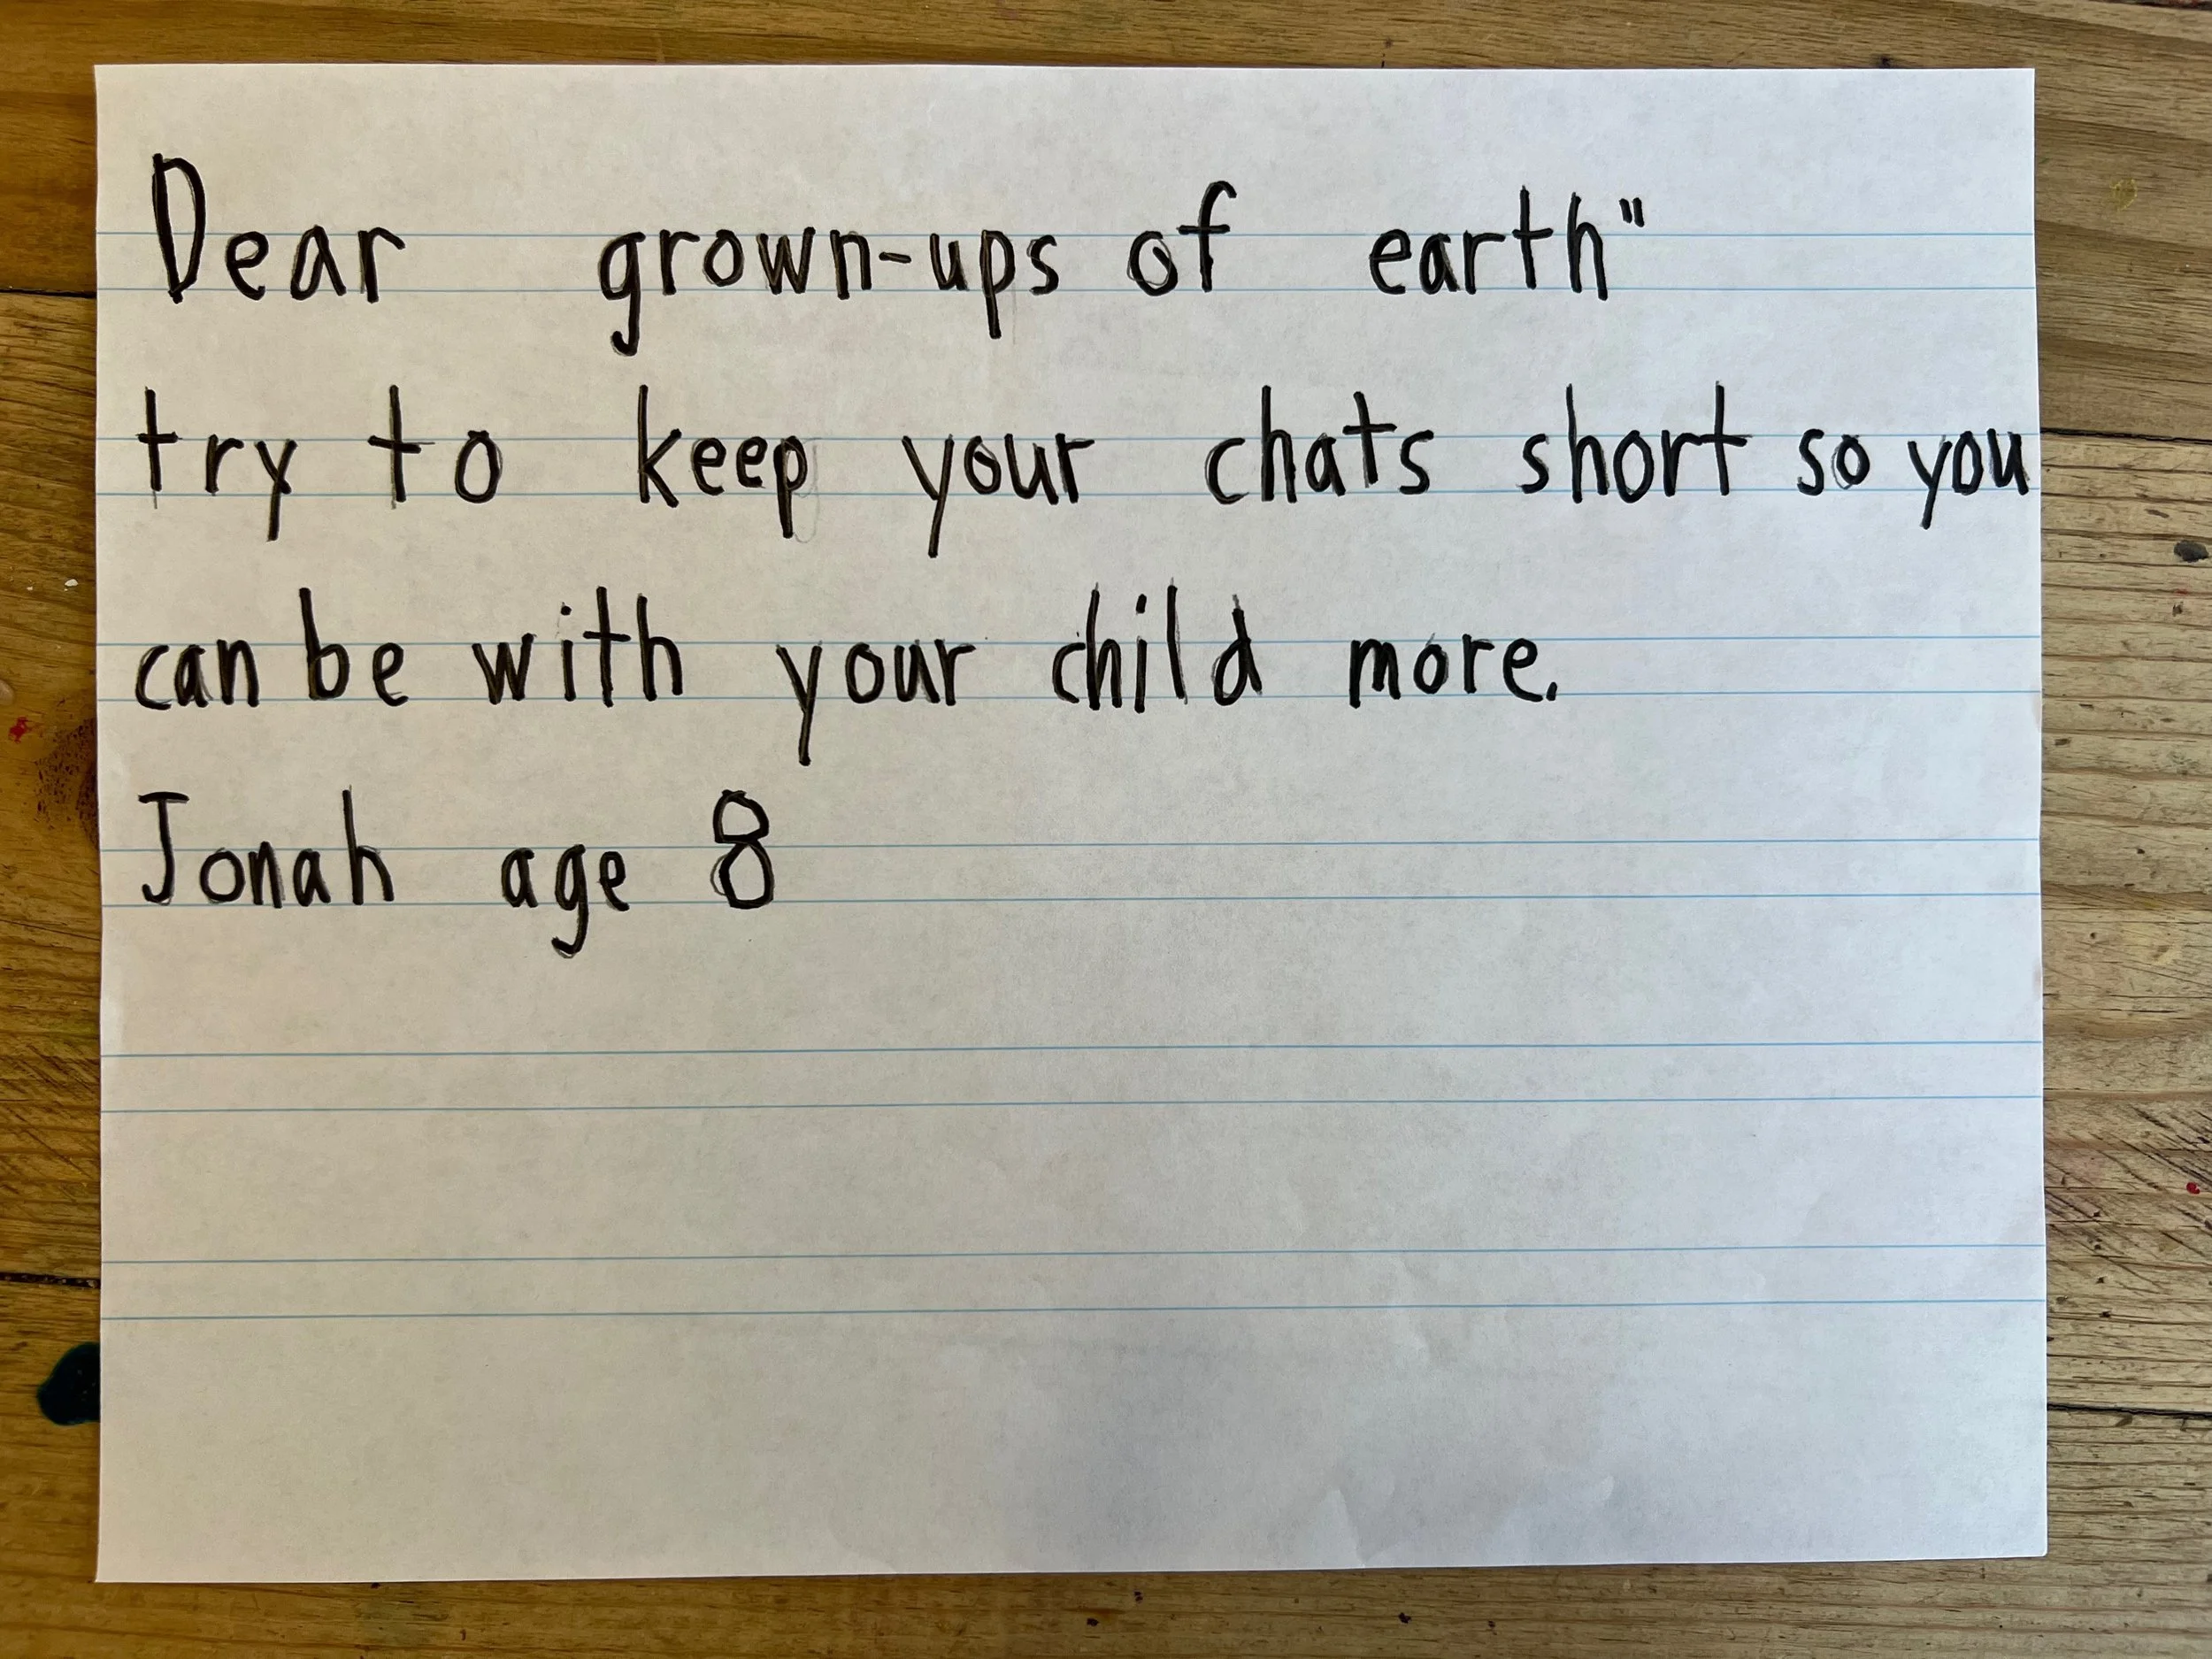 Dear grown-ups of earth"
try to keep your chats short so you
can be with your child more.
Jonah age 8